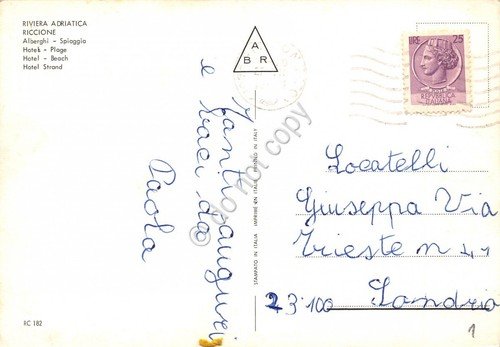 RIVIERA ADRIATICA
RICCIONE
Alberghi - Spiaggia
Hotels - Plage
Hotel - Beach
Hotel Strand
A
B R
LIRE 25
POSTE
REPVBBLICA
ITALIANA
Tanti auguri
e baci da
Paola
STAMPATO IN ITALIA IMPRIMÉ EN ITALIE PRINTED IN ITALY
do not copy
Locatelli
Giuseppa Via
Trieste n
23100 Sondrio
RC 182
1